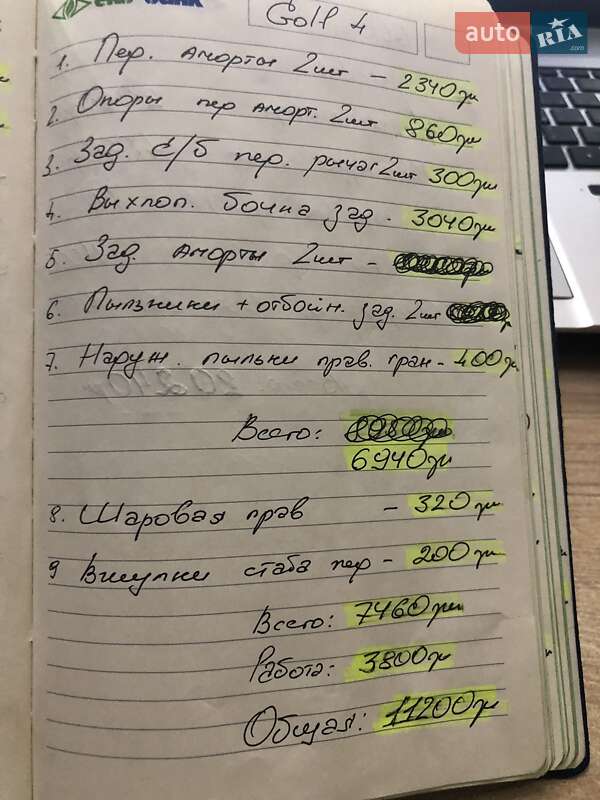 Golf 4
auto RIA .com
1. Пер. аморты 2шт - 2340грн
2. Опоры пер аморт. 2шт 860грн
3. Зад. с/б пер. рычаг 2шт 300грн
4. Выхлоп. бочка зад. 3040грн
5. Зад. аморты 2шт -
6. Пыльники + отбойн. зад. 2шт
7. Наруж. пыльки прав. гран - 400грн
Всего:
6940грн
8. Шаровая прав - 320грн
9 Втулки стаба пер - 200грн
Всего: 7460грн
Работа: 3800грн
Общая: 11200грн